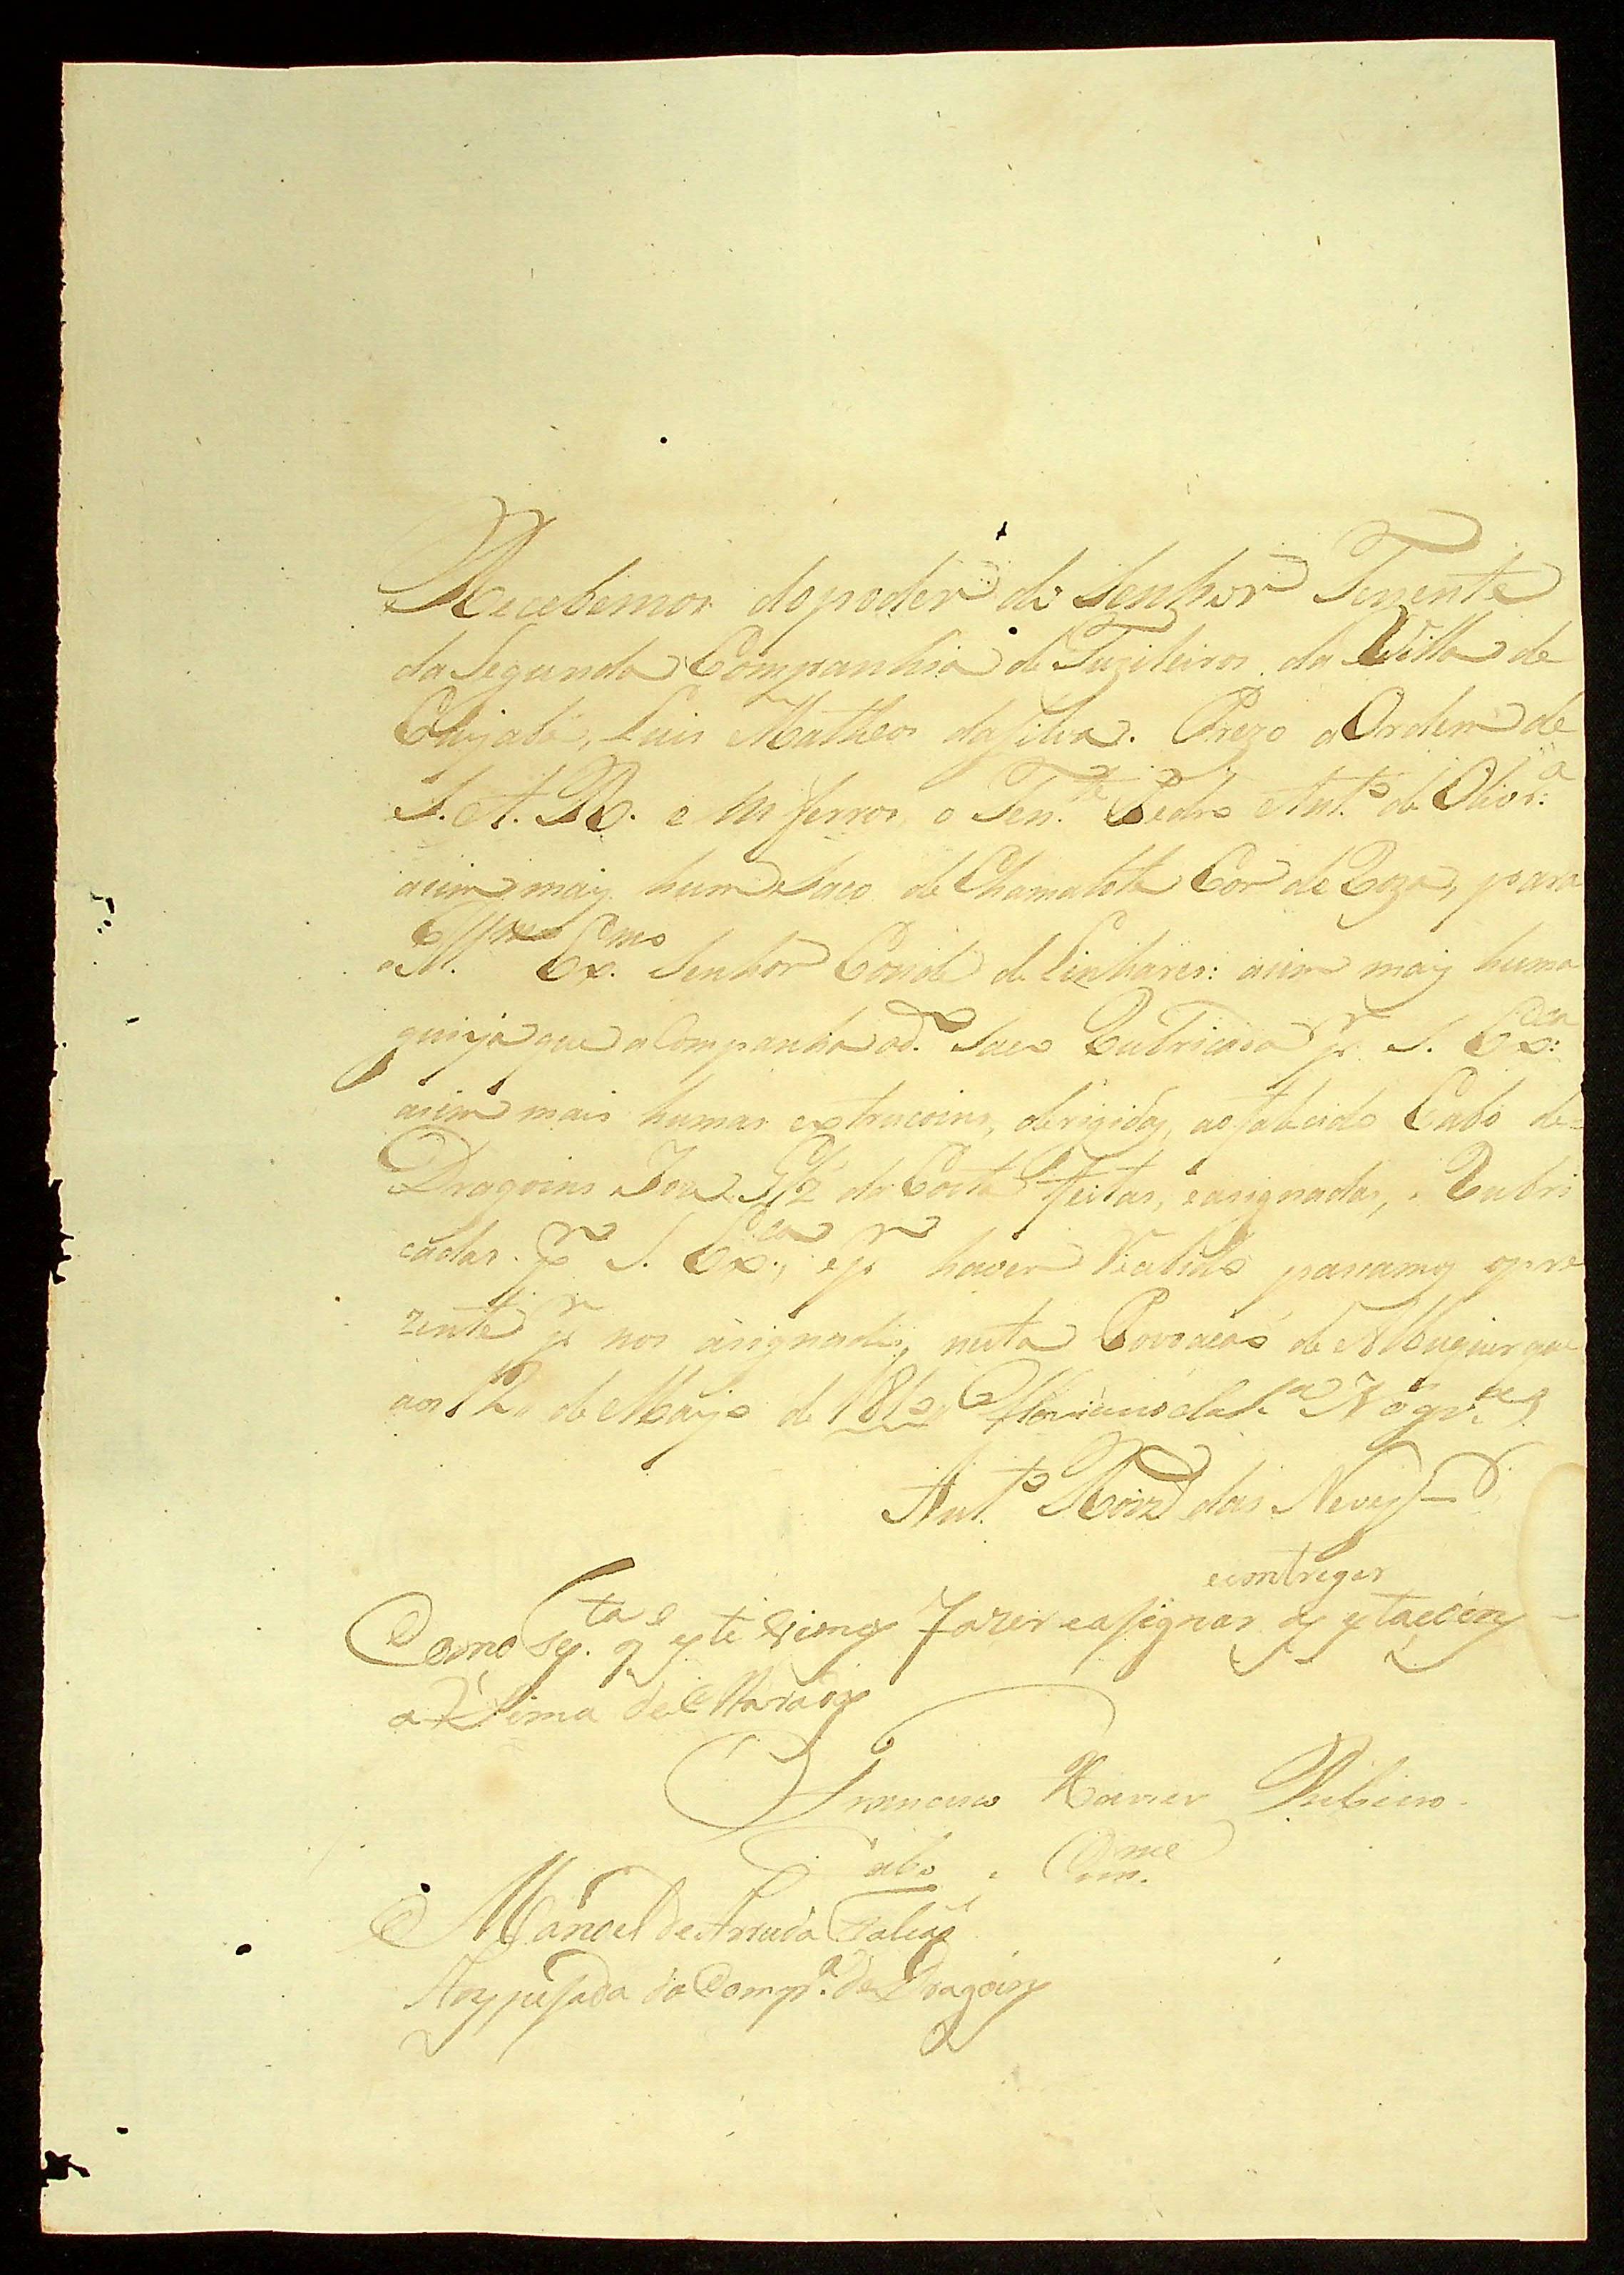 Recebemos do poder do Senhor Tenente
da Segunda Companhia de Fuzileiros da Villa de
Cuyabá, Luis Matheos da Silva. Prezo a Ordem de
S. A. R. e em ferros o Ten.te Pedro Ant.o de Olivr.a
asim mais hum Saco de Chamalote Cor de Roza, para
o Ill.mo Ex.mo Senhor Conde de Linhares: asim mais huma
guia que aCompanha o d.o Saco Rubricada pr S. Ex.cia
asim mais humas extrucoins, derigidas, ao falecido Cabo de
Dragoins Joze Glz da Costa Feitas, e asignadas, e Rubri
cadas pr S. Ex.cia, e pr haver Recebido pasamos o pre
zente pr nos asignado, nesta Povoacaõ de Albuquerque
aos 12 de Mayo de 1812 Floriano da S.a Nogr.a
Ant.o Roiz das Neves
eemtregar
Como test.a q este vimos fazer easignar
aSima de Clarados
Francisco Xavier Ribeiro
Cabo e Com.me
Manoel de Arruda Falcaõ
Anspesada da Comp.a de Dragois